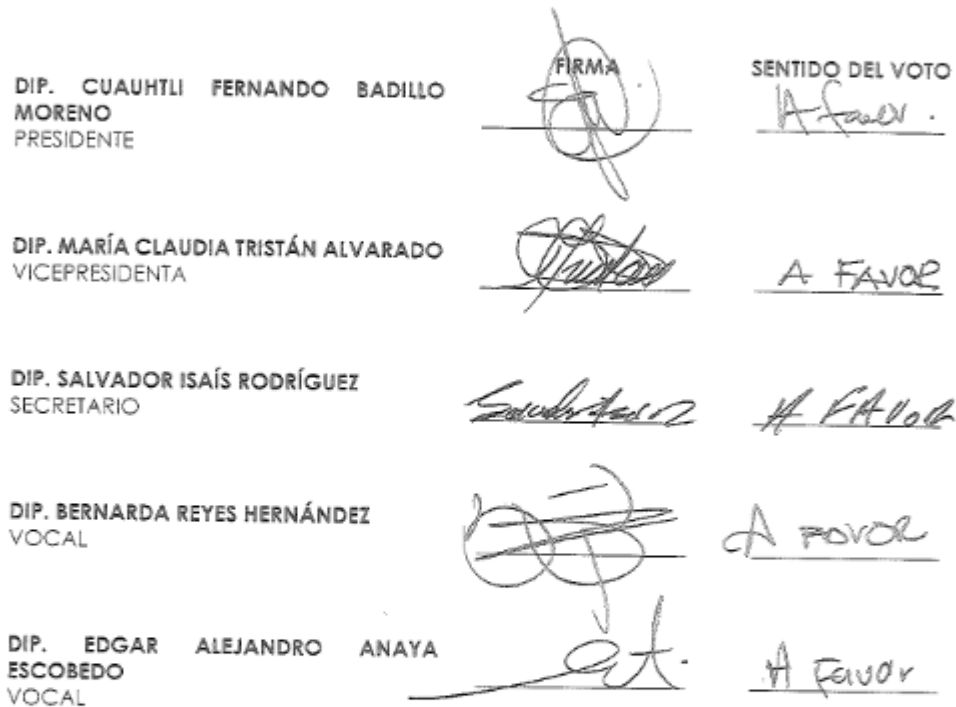 FIRMA SENTIDO DEL VOTO
DIP. CUAUHTLI FERNANDO BADILLO
MORENO A favor.
PRESIDENTE
DIP. MARÍA CLAUDIA TRISTÁN ALVARADO
VICEPRESIDENTA A FAVOR
DIP. SALVADOR ISAÍS RODRÍGUEZ
SECRETARIO A FAVOR
DIP. BERNARDA REYES HERNÁNDEZ
VOCAL A FOVOR
DIP. EDGAR ALEJANDRO ANAYA
ESCOBEDO A Favor
VOCAL